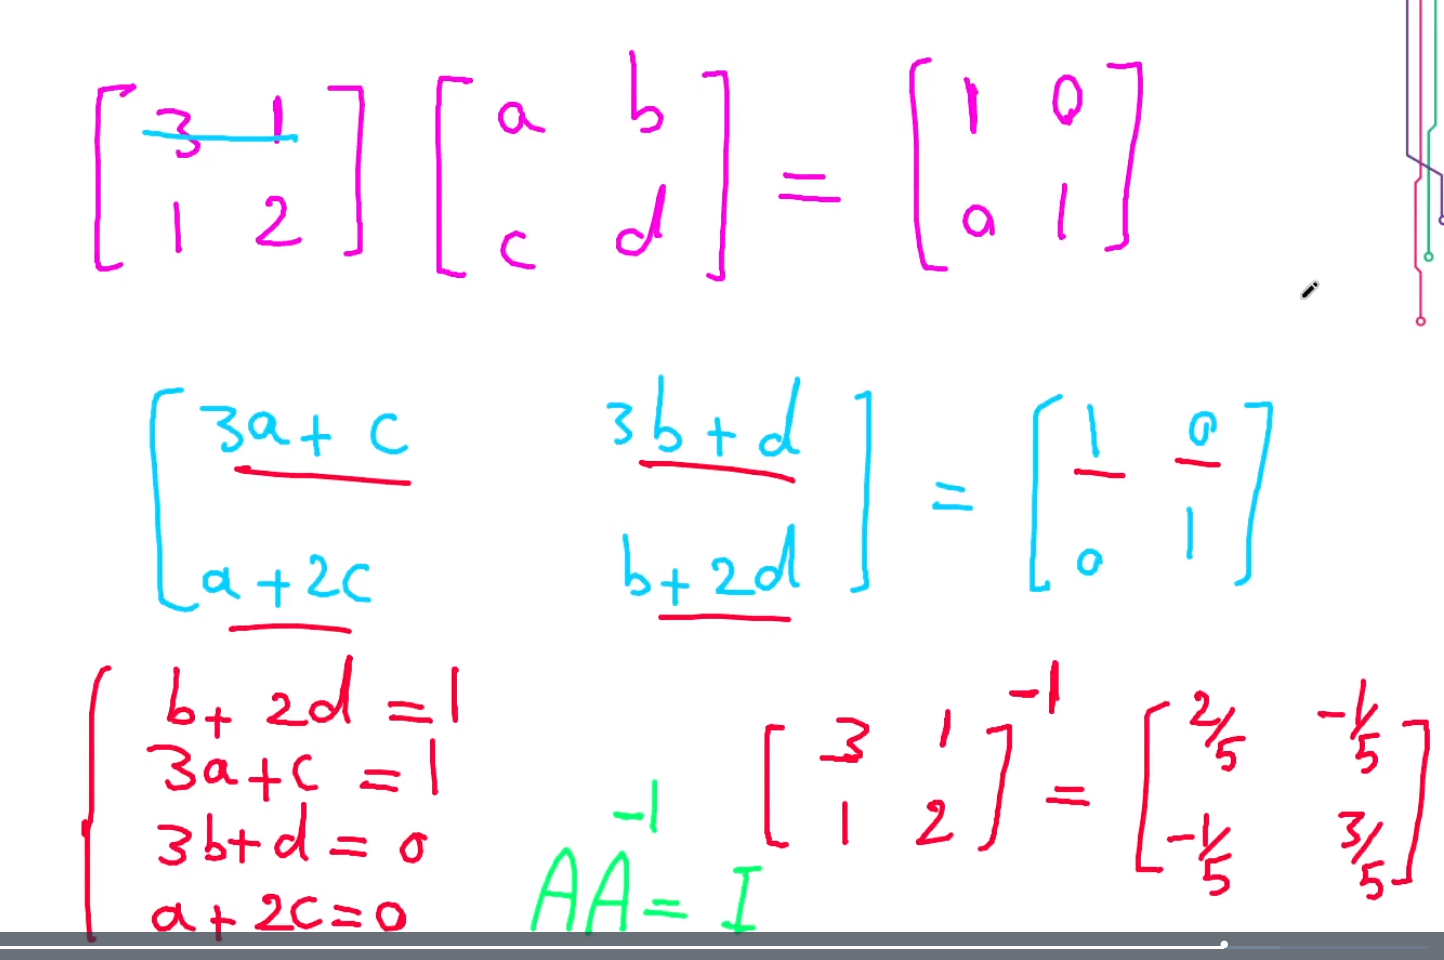 [3 1; 1 2] [a b; c d] = [1 0; 0 1]
[3a + c 3b + d; a + 2c b + 2d] = [1 0; 0 1]
b + 2d = 1
3a + c = 1
3b + d = 0
a + 2c = 0
AA⁻¹ = I
[3 1; 1 2]⁻¹ = [2/5 -1/5; -1/5 3/5]